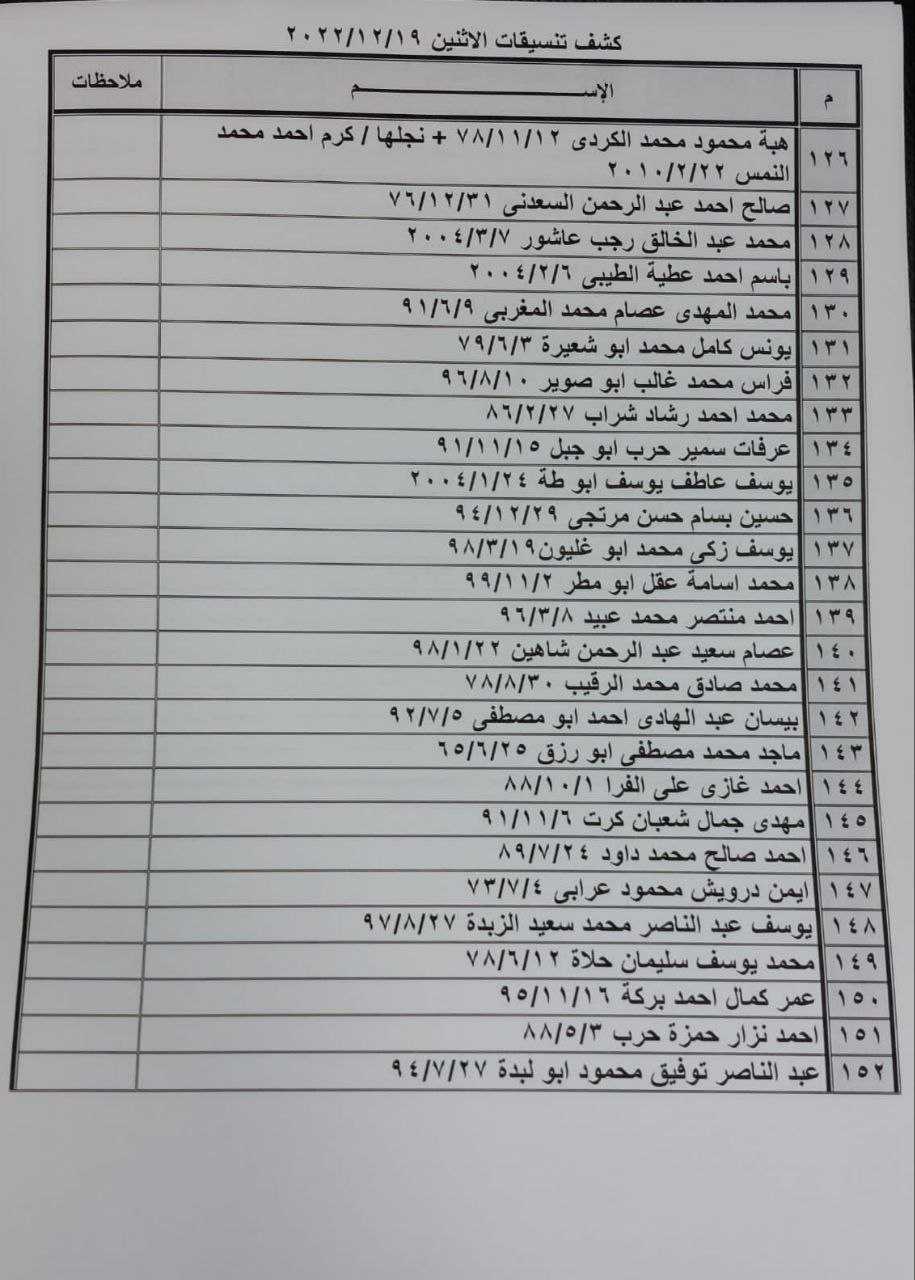 كشف تنسيقات الاثنين ٢٠٢٢/١٢/١٩
م الإســـــــــــــم ملاحظات
١٢٦ هبة محمود محمد الكردى ٧٨/١١/١٢ + نجلها / كرم احمد محمد
النمس ٢٠١٠/٢/٢٢
١٢٧ صالح احمد عبد الرحمن السعدنى ٧٦/١٢/٣١
١٢٨ محمد عبد الخالق رجب عاشور ٢٠٠٤/٣/٧
١٢٩ باسم احمد عطية الطيبى ٢٠٠٤/٢/٦
١٣٠ محمد المهدى عصام محمد المغربى ٩١/٦/٩
١٣١ يونس كامل محمد ابو شعيرة ٧٩/٦/٣
١٣٢ فراس محمد غالب ابو صوير ٩٦/٨/١٠
١٣٣ محمد احمد رشاد شراب ٨٦/٢/٢٧
١٣٤ عرفات سمير حرب ابو جبل ٩١/١١/١٥
١٣٥ يوسف عاطف يوسف ابو طة ٢٠٠٤/١/٢٤
١٣٦ حسين بسام حسن مرتجى ٩٤/١٢/٢٩
١٣٧ يوسف زكى محمد ابو غليون٩٨/٣/١٩
١٣٨ محمد اسامة عقل ابو مطر ٩٩/١١/٢
١٣٩ احمد منتصر محمد عبيد ٩٦/٣/٨
١٤٠ عصام سعيد عبد الرحمن شاهين ٩٨/١/٢٢
١٤١ محمد صادق محمد الرقيب ٧٨/٨/٣٠
١٤٢ بيسان عبد الهادى احمد ابو مصطفى ٩٢/٧/٥
١٤٣ ماجد محمد مصطفى ابو رزق ٦٥/٦/٢٥
١٤٤ احمد غازى على الفرا ٨٨/١٠/١
١٤٥ مهدى جمال شعبان كرت ٩١/١١/٦
١٤٦ احمد صالح محمد داود ٨٩/٧/٢٤
١٤٧ ايمن درويش محمود عرابى ٧٣/٧/٤
١٤٨ يوسف عبد الناصر محمد سعيد الزبدة ٩٧/٨/٢٧
١٤٩ محمد يوسف سليمان حلاة ٧٨/٦/١٢
١٥٠ عمر كمال احمد بركة ٩٥/١١/١٦
١٥١ احمد نزار حمزة حرب ٨٨/٥/٣
١٥٢ عبد الناصر توفيق محمود ابو لبدة ٩٤/٧/٢٧